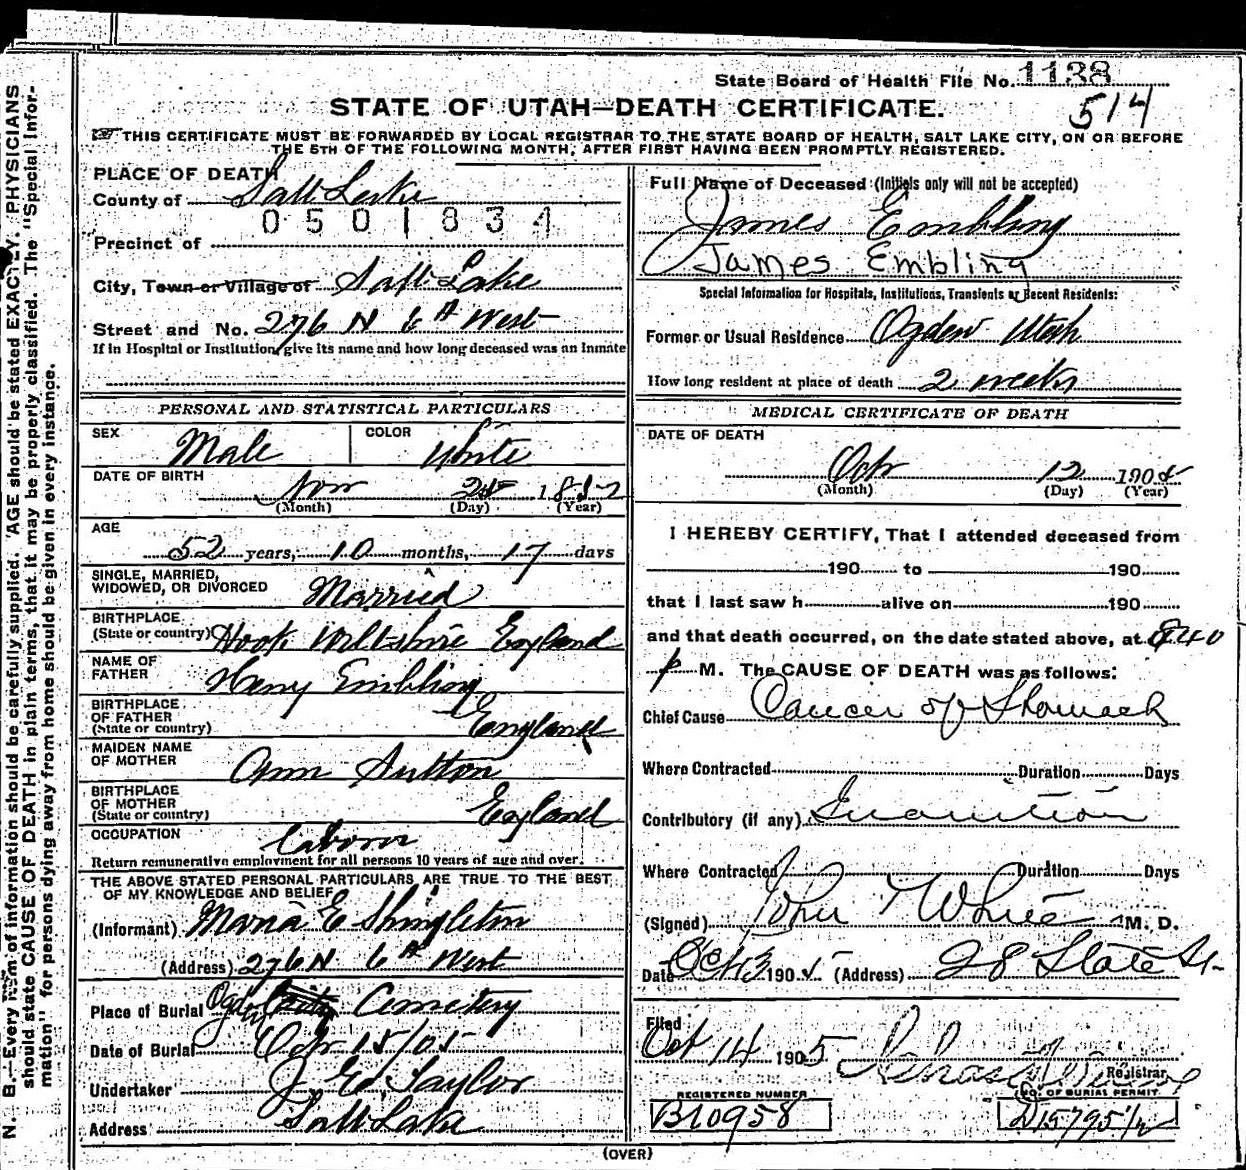 State Board of Health File No. 1138
514
STATE OF UTAH—DEATH CERTIFICATE.
THIS CERTIFICATE MUST BE FORWARDED BY LOCAL REGISTRAR TO THE STATE BOARD OF HEALTH, SALT LAKE CITY, ON OR BEFORE
THE 5TH OF THE FOLLOWING MONTH, AFTER FIRST HAVING BEEN PROMPTLY REGISTERED.
PLACE OF DEATH
County of Salt Lake
0501834
Precinct of
City, Town or Village of Salt Lake
Street and No. 276 N 6th West
If in Hospital or Institution, give its name and how long deceased was an Inmate
PERSONAL AND STATISTICAL PARTICULARS
SEX Male COLOR White
DATE OF BIRTH Nov 25 1852
(Month) (Day) (Year)
AGE
52 years, 10 months, 17 days
SINGLE, MARRIED,
WIDOWED, OR DIVORCED Married
BIRTHPLACE
(State or country) Hook Wiltshire England
NAME OF
FATHER Henry Embling
BIRTHPLACE
OF FATHER
(State or country) England
MAIDEN NAME
OF MOTHER Ann Sutton
BIRTHPLACE
OF MOTHER
(State or country) England
OCCUPATION Laborer
Return remunerative employment for all persons 10 years of age and over.
THE ABOVE STATED PERSONAL PARTICULARS ARE TRUE TO THE BEST
OF MY KNOWLEDGE AND BELIEF
(Informant) Maria E Shingleton
(Address) 276 N 6th West
Place of Burial Ogden City Cemetery
Date of Burial Oct 15/05
Undertaker J. Ed Taylor
Address Salt Lake
Full Name of Deceased (Initials only will not be accepted)
James Embling
James Embling
Special Information for Hospitals, Institutions, Transients or Recent Residents:
Former or Usual Residence Ogden Utah
How long resident at place of death 2 weeks
MEDICAL CERTIFICATE OF DEATH
DATE OF DEATH
Oct 12 1905
(Month) (Day) (Year)
I HEREBY CERTIFY, That I attended deceased from
190 to 190
that I last saw h alive on 190
and that death occurred, on the date stated above, at 840
p M. The CAUSE OF DEATH was as follows:
Chief Cause Cancer of Stomach
Where Contracted Duration Days
Contributory (if any) Inanition
Where Contracted Duration Days
(Signed) John White M. D.
Date Oct 13 1905 (Address) 28 State St.
Filed
Oct 14 1905
Registrar
REGISTERED NUMBER
B10958
NO. OF BURIAL PERMIT
D15795 1/2
(OVER)
N. B.—Every item of information should be carefully supplied. AGE should be stated EXACTLY. PHYSICIANS
should state CAUSE OF DEATH in plain terms, that it may be properly classified. The "Special Infor-
mation" for persons dying away from home should be given in every instance.